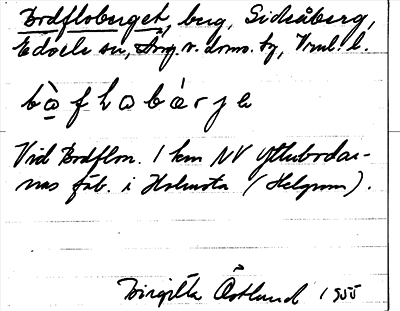 Bodfloberget, berg, Sidsåberg,
Edsele sn, Ång. v. doms. tg, Vnl. l.
bòfhobǻrje
Vid Bodflon. 1 km NV Ytterbodar-
nas fäb. i Holmsta (Helgum).
Birgitta Östlund 1955